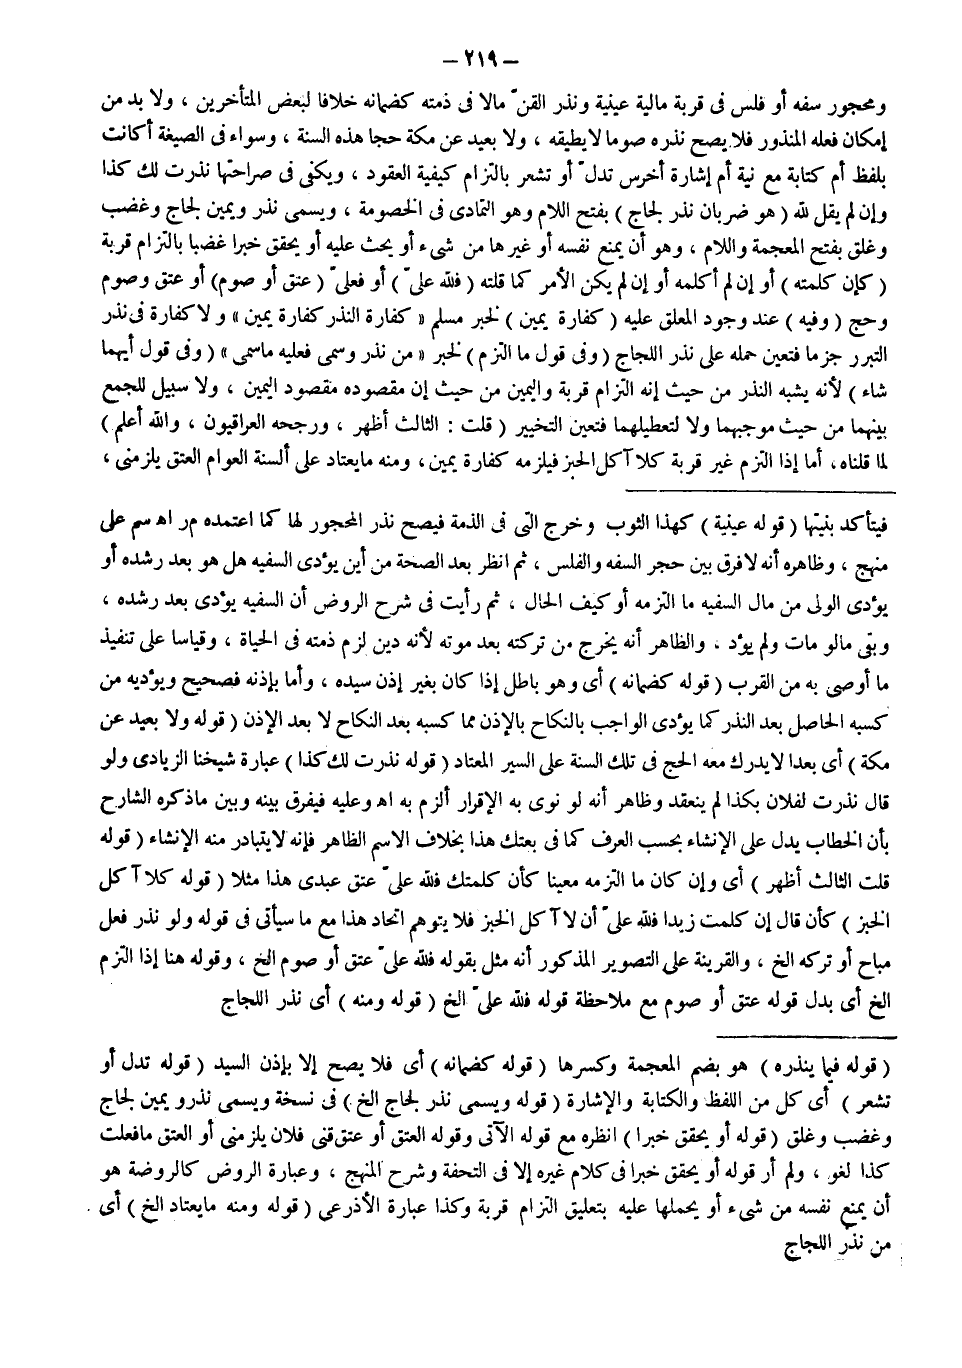 – ٢١٩ –
ومحجور سفه أو فلس فى قربة مالية عينية ونذر القنّ مالا فى ذمته كضمانه خلافا لبعض المتأخرين ، ولا بد من
إمكان فعله المنذور فلا يصح نذره صوما لا يطيقه ، ولا بعيد عن مكة حجا هذه السنة ، وسواء فى الصيغة أكانت
بلفظ أم كتابة مع نية أم إشارة أخرس تدلّ أو تشعر بالتزام كيفية العقود ، ويكفى فى صراحتها نذرت لك كذا
وإن لم يقل لله ( هو ضربان نذر لجاج ) بفتح اللام وهو التمادى فى الخصومة ، ويسمى نذر ويمين لجاج وغضب
وغلق بفتح المعجمة واللام ، وهو أن يمنع نفسه أو غيرها من شىء أو يحث عليه أو يحقق خبرا غضبا بالتزام قربة
( كإن كلمته ) أو إن لم أكلمه أو إن لم يكن الأمر كما قلته ( فلله علىّ ) أو فعلىّ ( عتق أو صوم) أو عتق وصوم
وحج ( وفيه ) عند وجود المعلق عليه ( كفارة يمين ) لخبر مسلم « كفارة النذر كفارة يمين » ولا كفارة فى نذر
التبرر جزما فتعين حمله على نذر اللجاج ( وفى قول ما التزم ) لخبر « من نذر وسمى فعليه ماسمى » ( وفى قول أيهما
شاء ) لأنه يشبه النذر من حيث إنه التزام قربة واليمين من حيث إن مقصوده مقصود اليمين ، ولا سبيل للجمع
بينهما من حيث موجبهما ولا لتعطيلهما فتعين التخيير ( قلت : الثالث أظهر ، ورجحه العراقيون ، والله أعلم )
لما قلناه، أما إذا التزم غير قربة كلا آكل الخبز فيلزمه كفارة يمين، ومنه مايعتاد على ألسنة العوام العتق يلزمنى ،
فيتأكد بنيتها ( قوله عينية ) كهذا الثوب وخرج التى فى الذمة فيصح نذر المحجور لها كما اعتمده م ر اه سم على
منهج ، وظاهره أنه لافرق بين حجر السفه والفلس ، ثم انظر بعد الصحة من أين يؤدى السفيه هل هو بعد رشده أو
يؤدى الولى من مال السفيه ما التزمه أو كيف الحال ، ثم رأيت فى شرح الروض أن السفيه يؤدى بعد رشده ،
وبقى مالو مات ولم يؤد ، والظاهر أنه يخرج من تركته بعد موته لأنه دين لزم ذمته فى الحياة ، وقياسا على تنفيذ
ما أوصى به من القرب ( قوله كضمانه ) أى وهو باطل إذا كان بغير إذن سيده ، وأما بإذنه فصحيح ويؤديه من
كسبه الحاصل بعد النذر كما يؤدى الواجب بالنكاح بالإذن مما كسبه بعد النكاح لا بعد الإذن ( قوله ولا بعيد عن
مكة ) أى بعدا لا يدرك معه الحج فى تلك السنة على السير المعتاد ( قوله نذرت لك كذا ) عبارة شيخنا الزيادى ولو
قال نذرت لفلان بكذا لم ينعقد وظاهر أنه لو نوى به الإقرار ألزم به اه وعليه فيفرق بينه وبين ماذكره الشارح
بأن الخطاب يدل على الإنشاء بحسب العرف كما فى بعتك هذا بخلاف الاسم الظاهر فإنه لايتبادر منه الإنشاء ( قوله
قلت الثالث أظهر ) أى وإن كان ما التزمه معينا كأن كلمتك فلله علىّ عتق عبدى هذا مثلا ( قوله كلا آكل
الخبز ) كأن قال إن كلمت زيدا فلله علىّ أن لا آكل الخبز فلا يتوهم اتحاد هذا مع ما سيأتى فى قوله ولو نذر فعل
مباح أو تركه الخ ، والقرينة على التصوير المذكور أنه مثل بقوله فلله علىّ عتق أو صوم الخ ، وقوله هنا إذا التزم
الخ أى بدل قوله عتق أو صوم مع ملاحظة قوله فلله علىّ الخ ( قوله ومنه ) أى نذر اللجاج
( قوله فيما ينذره ) هو بضم المعجمة وكسرها ( قوله كضمانه ) أى فلا يصح إلا بإذن السيد ( قوله تدل أو
تشعر ) أى كل من اللفظ والكتابة والإشارة ( قوله ويسمى نذر لجاج الخ ) فى نسخة ويسمى نذرو يمين لجاج
وغضب وغلق ( قوله أو يحقق خبرا ) انظره مع قوله الآتى وقوله العتق أو عتق قنى فلان يلزمنى أو العتق مافعلت
كذا لغو ، ولم أر قوله أو يحقق خبرا فى كلام غيره إلا فى التحفة وشرح المنهج ، وعبارة الروض كالروضة هو
أن يمنع نفسه من شىء أو يحملها عليه بتعليق التزام قربة وكذا عبارة الأذرعى ( قوله ومنه مايعتاد الخ ) أى
من نذر اللجاج